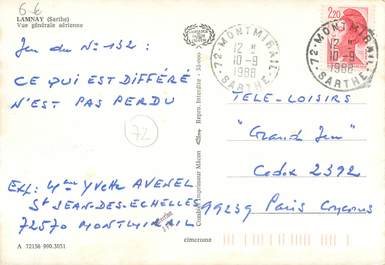 6€
LAMNAY (Sarthe)
Vue générale aérienne
Jeu du N° 132 :
CE QUI EST DIFFÉRÉ
N'EST PAS PERDU
72
Exp: Mme Yvette AVENEL
St JEAN-DES-ECHELLES
72570 MONTMIRAIL
A 72156 990.3051
Combier Imprimeur Mâcon
Repro. Interdite
cim
cimcrome
72 - MONTMIRAIL -
12 H
10-9
1988
SARTHE
2,20
72 - MONTMIRAIL -
12 H
10-9
1988
SARTHE
TELE-LOISIRS
"Grand Jeu"
Cedex 2392
99239 Paris Concours